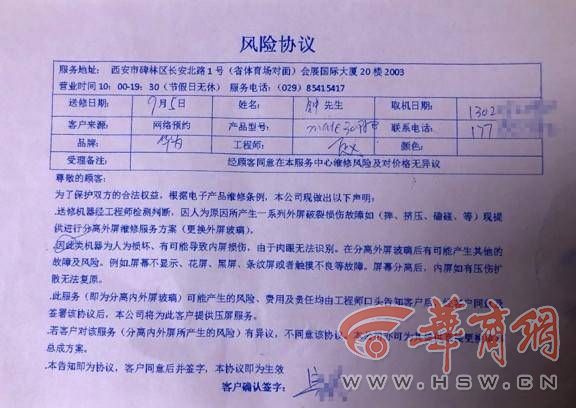 风险协议
服务地址: 西安市碑林区长安北路1号(省体育场对面)会展国际大厦20楼2003
营业时间10:00-19:30(节假日无休) 服务电话:(029)85415417
送修日期: 9月5日 姓名: 先生 取机日期: 1302
客户来源: 网络预约 产品型号: mate30 联系电话: 177
品牌: 华为 工程师: 颜色:
受理备注: 经顾客同意在本服务中心维修风险及对价格无异议
尊敬的顾客:
为了保护双方的合法权益,根据电子产品维修条例,本公司现做出以下声明:
.送修机器经工程师检测判断,因人为原因所产生一系列外屏破裂损伤故障如(摔、挤压、磕碰、等)现提
供进行分离外屏维修服务方案(更换外屏玻璃)。
.因此类机器为人为损坏、有可能导致内屏损伤,由于肉眼无法识别。在分离外屏玻璃后有可能产生其他的
故障及风险。例如.屏幕不显示、花屏、黑屏、条纹屏或者触摸不良等故障。屏幕分离后,内屏如有压伤扩
散无法复原。
.此服务(即为分离内外屏玻璃)可能产生的风险、费用及责任均由工程师口头告知客户后,经客户同意
签署该协议后,本公司将为此客户提供压屏服务。
.若客户对该服务(分离内外屏所产生的风险)有异议,不同意该协议,本公司亦可为
总成方案。
.本告知即为协议,客户同意后并签字,本协议即为生效
客户确认签字:
华商网
WWW.HSW.CN